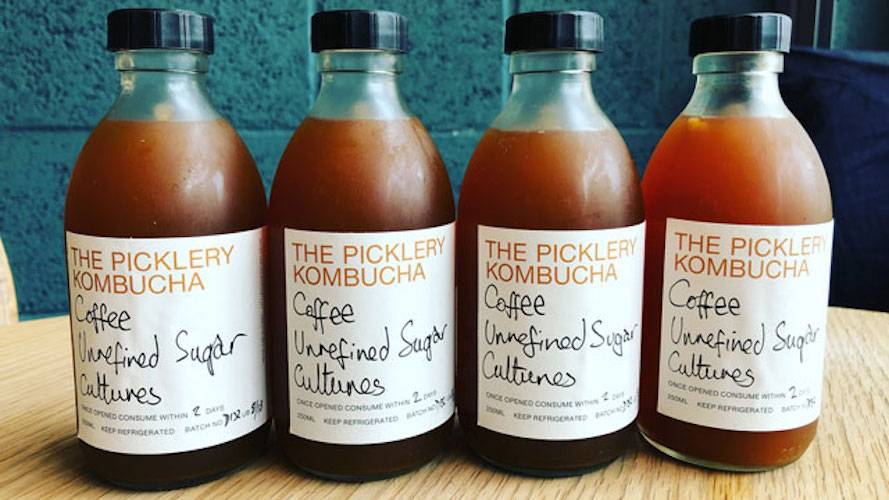 THE PICKLERY
KOMBUCHA
Coffee
Unrefined Sugar
Cultures
ONCE OPENED CONSUME WITHIN 2 DAYS
250ML KEEP REFRIGERATED BATCH NO
THE PICKLERY
KOMBUCHA
Coffee
Unrefined Sugar
Cultures
ONCE OPENED CONSUME WITHIN 2 DAYS
250ML KEEP REFRIGERATED BATCH NO
THE PICKLERY
KOMBUCHA
Coffee
Unrefined Sugar
Cultures
ONCE OPENED CONSUME WITHIN 2 DAYS
250ML KEEP REFRIGERATED BATCH NO
THE PICKLERY
KOMBUCHA
Coffee
Unrefined Sugar
Cultures
ONCE OPENED CONSUME WITHIN 2 DAYS
250ML KEEP REFRIGERATED BATCH